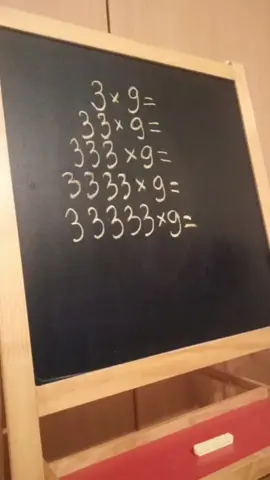 3 × 9 =
33 × 9 =
333 × 9 =
3333 × 9 =
33333 × 9 =